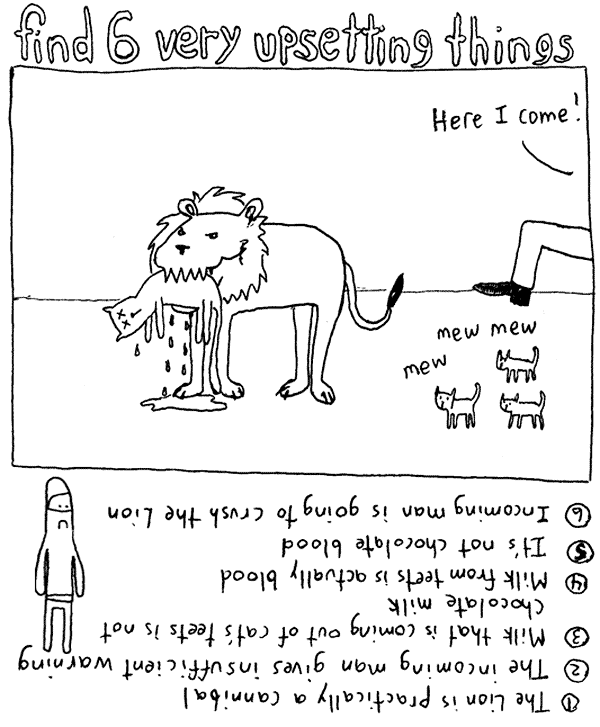 find 6 very upsetting things
Here I come!
mew mew
mew
① The Lion is practically a cannibal
② The incoming man gives insufficient warning
③ Milk that is coming out of cat's teets is not
chocolate milk
④ Milk from teets is actually blood
⑤ It's not chocolate blood
⑥ Incoming man is going to crush the Lion